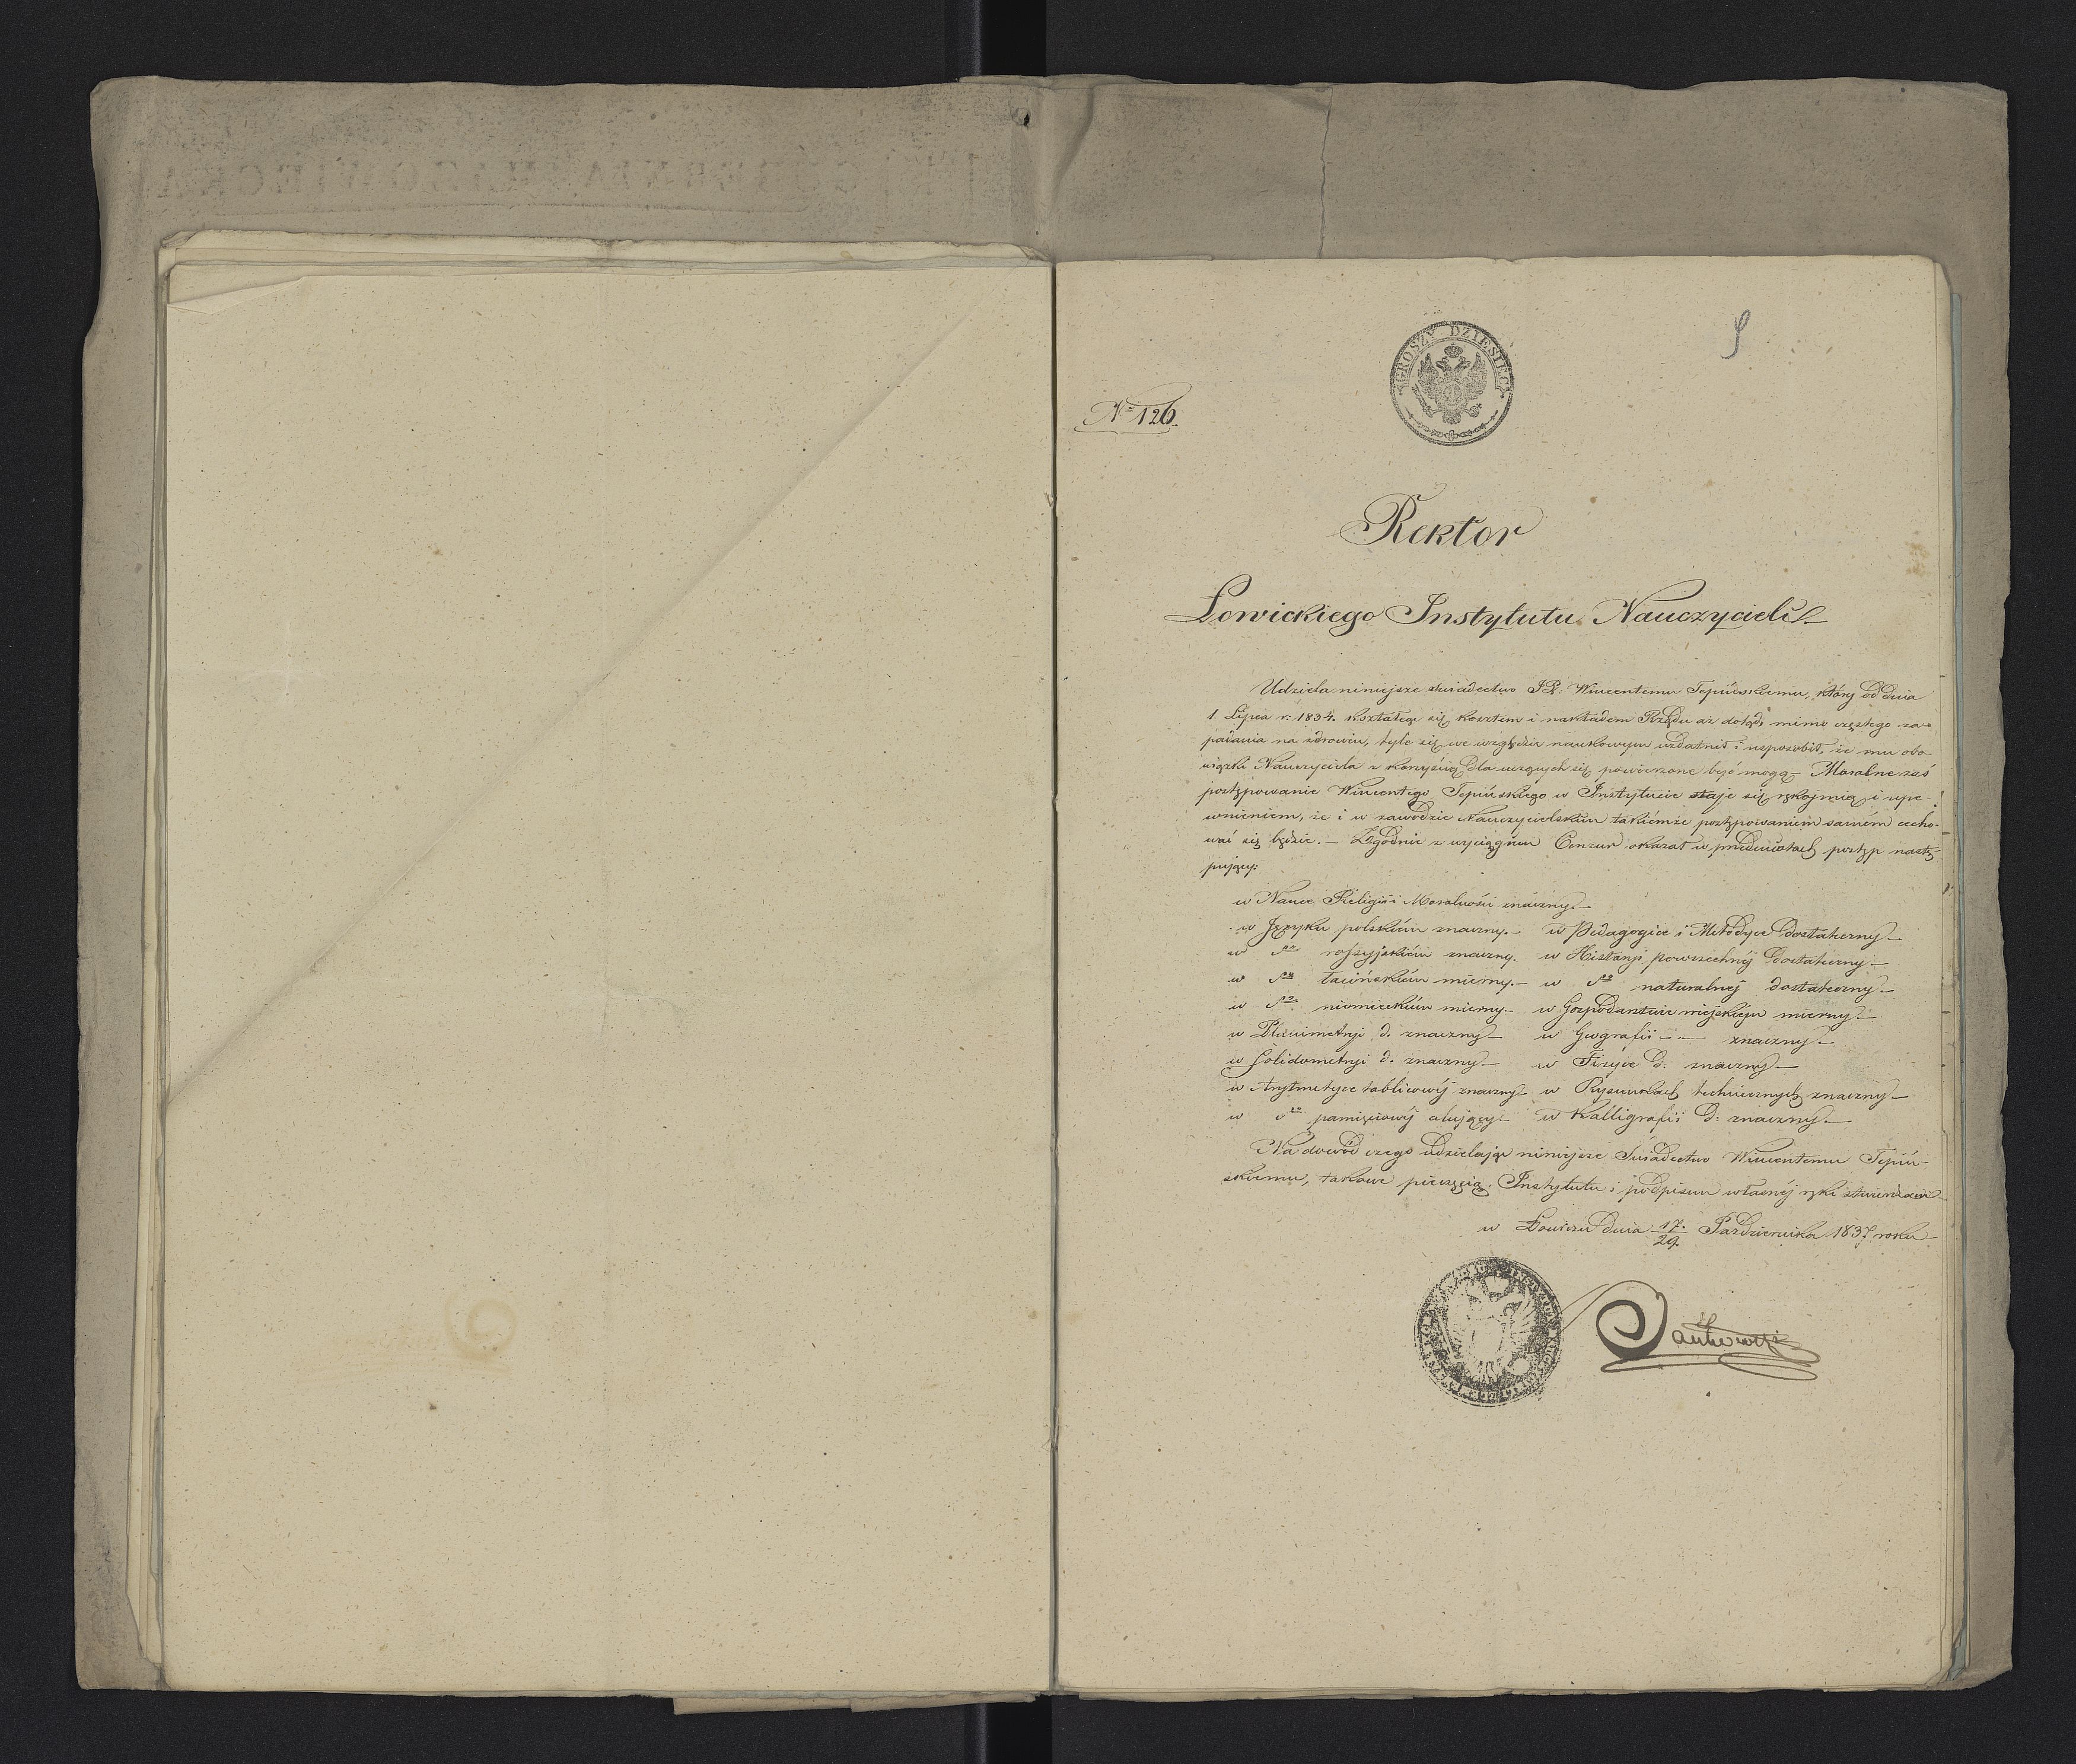 GUBERNIA MAZOWIECKA
GROSZY DZIESIĘĆ
9
No 126.
Rektor
Łowickiego Instytutu Nauczycieli
Udziela niniejsze świadectwo JP: Wincentemu Tepińskiemu, który od dnia
1. Lipca r: 1834. kształcąc się kosztem i nakładem Rządu aż dotąd, mimo częstego za-
padania na zdrowiu, tyle się we względzie naukowym uzdatnił i usposobił, że mu obo-
wiązki Nauczyciela z korzyścią dla uczących się powierzone być mogą – Moralne zaś
postępowanie Wincentego Tepińskiego w Instytucie staje się rękojmią i upe-
wnieniem, że i w zawodzie Nauczycielskim takiémże postępowaniem samém cecho-
wać się będzie. – Zgodnie z wyciągiem Cenzur okazał w przedmiotach postęp nastę-
pujący:
w Nauce Religii i Moralności znaczny –
w Języku polskiém znaczny. – w Pedagogice i Metodyce dostateczny –
w do rossyjskiém znaczny. w Historyi powszechnéj dostateczny –
w do łacińskiém mierny. – w do naturalnéj dostateczny –
w do niemieckiém mierny – w Gospodarstwie wiejskiém mierny –
w Planimetryi d. znaczny – w Geografii – – znaczny –
w Solidometryi d. znaczny – w Fizyce d: znaczny –
w Arytmetyce tablicowéj znaczny – w Rysunkach technicznych znaczny –
w do pamięciowéj celujący – w Kalligrafii d: znaczny –
Na dowód czego udzielając niniejsze Świadectwo Wincentemu Tepiń-
skiemu, takowe pieczęcią Instytutu i podpisem własnéj ręki stwierdzam –
w Łowiczu dnia 17./29. Października 1837 roku –